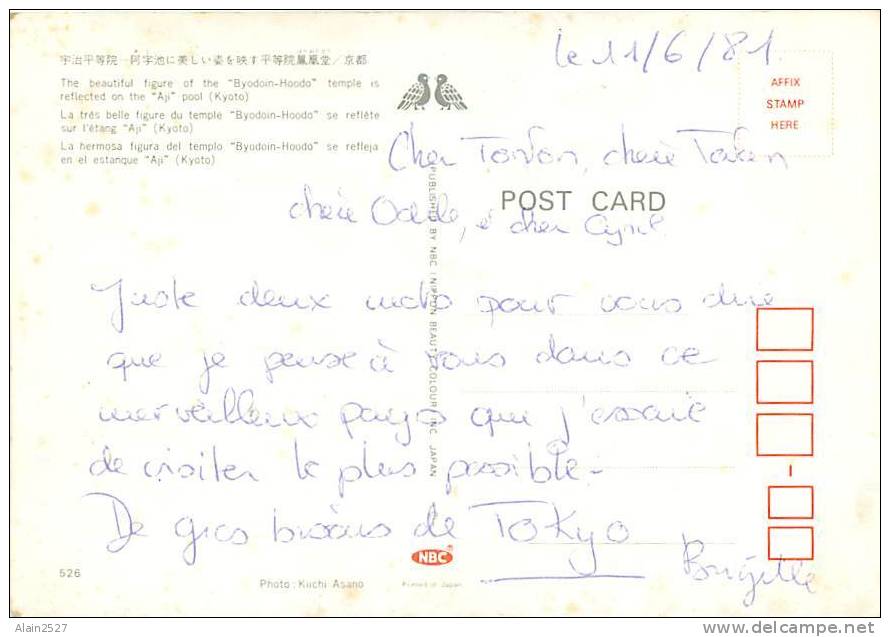 宇治平等院―阿字池に美しい姿を映す平等院鳳凰堂／京都
The beautiful figure of the "Byodoin-Hoodo" temple is
reflected on the "Aji" pool (Kyoto)
La très belle figure du temple "Byodoin-Hoodo" se reflète
sur l'étang "Aji" (Kyoto)
La hermosa figura del templo "Byodoin-Hoodo" se refleja
en el estanque "Aji" (Kyoto)
le 11/6/81
AFFIX
STAMP
HERE
POST CARD
PUBLISHED BY NBC (NIPPON BEAUTY COLOUR) INC. JAPAN
Cher Tonton, chère
chère Odile, et cher Cyril
Juste deux mots pour vous dire
que je pense à vous dans ce
merveilleux pays que j'essaie
de visiter le plus possible -
De gros bisous de Tokyo
Brigitte
NBC
526
Photo : Kiichi Asano
Printed in Japan
Alain2527
http://www.delcampe.net